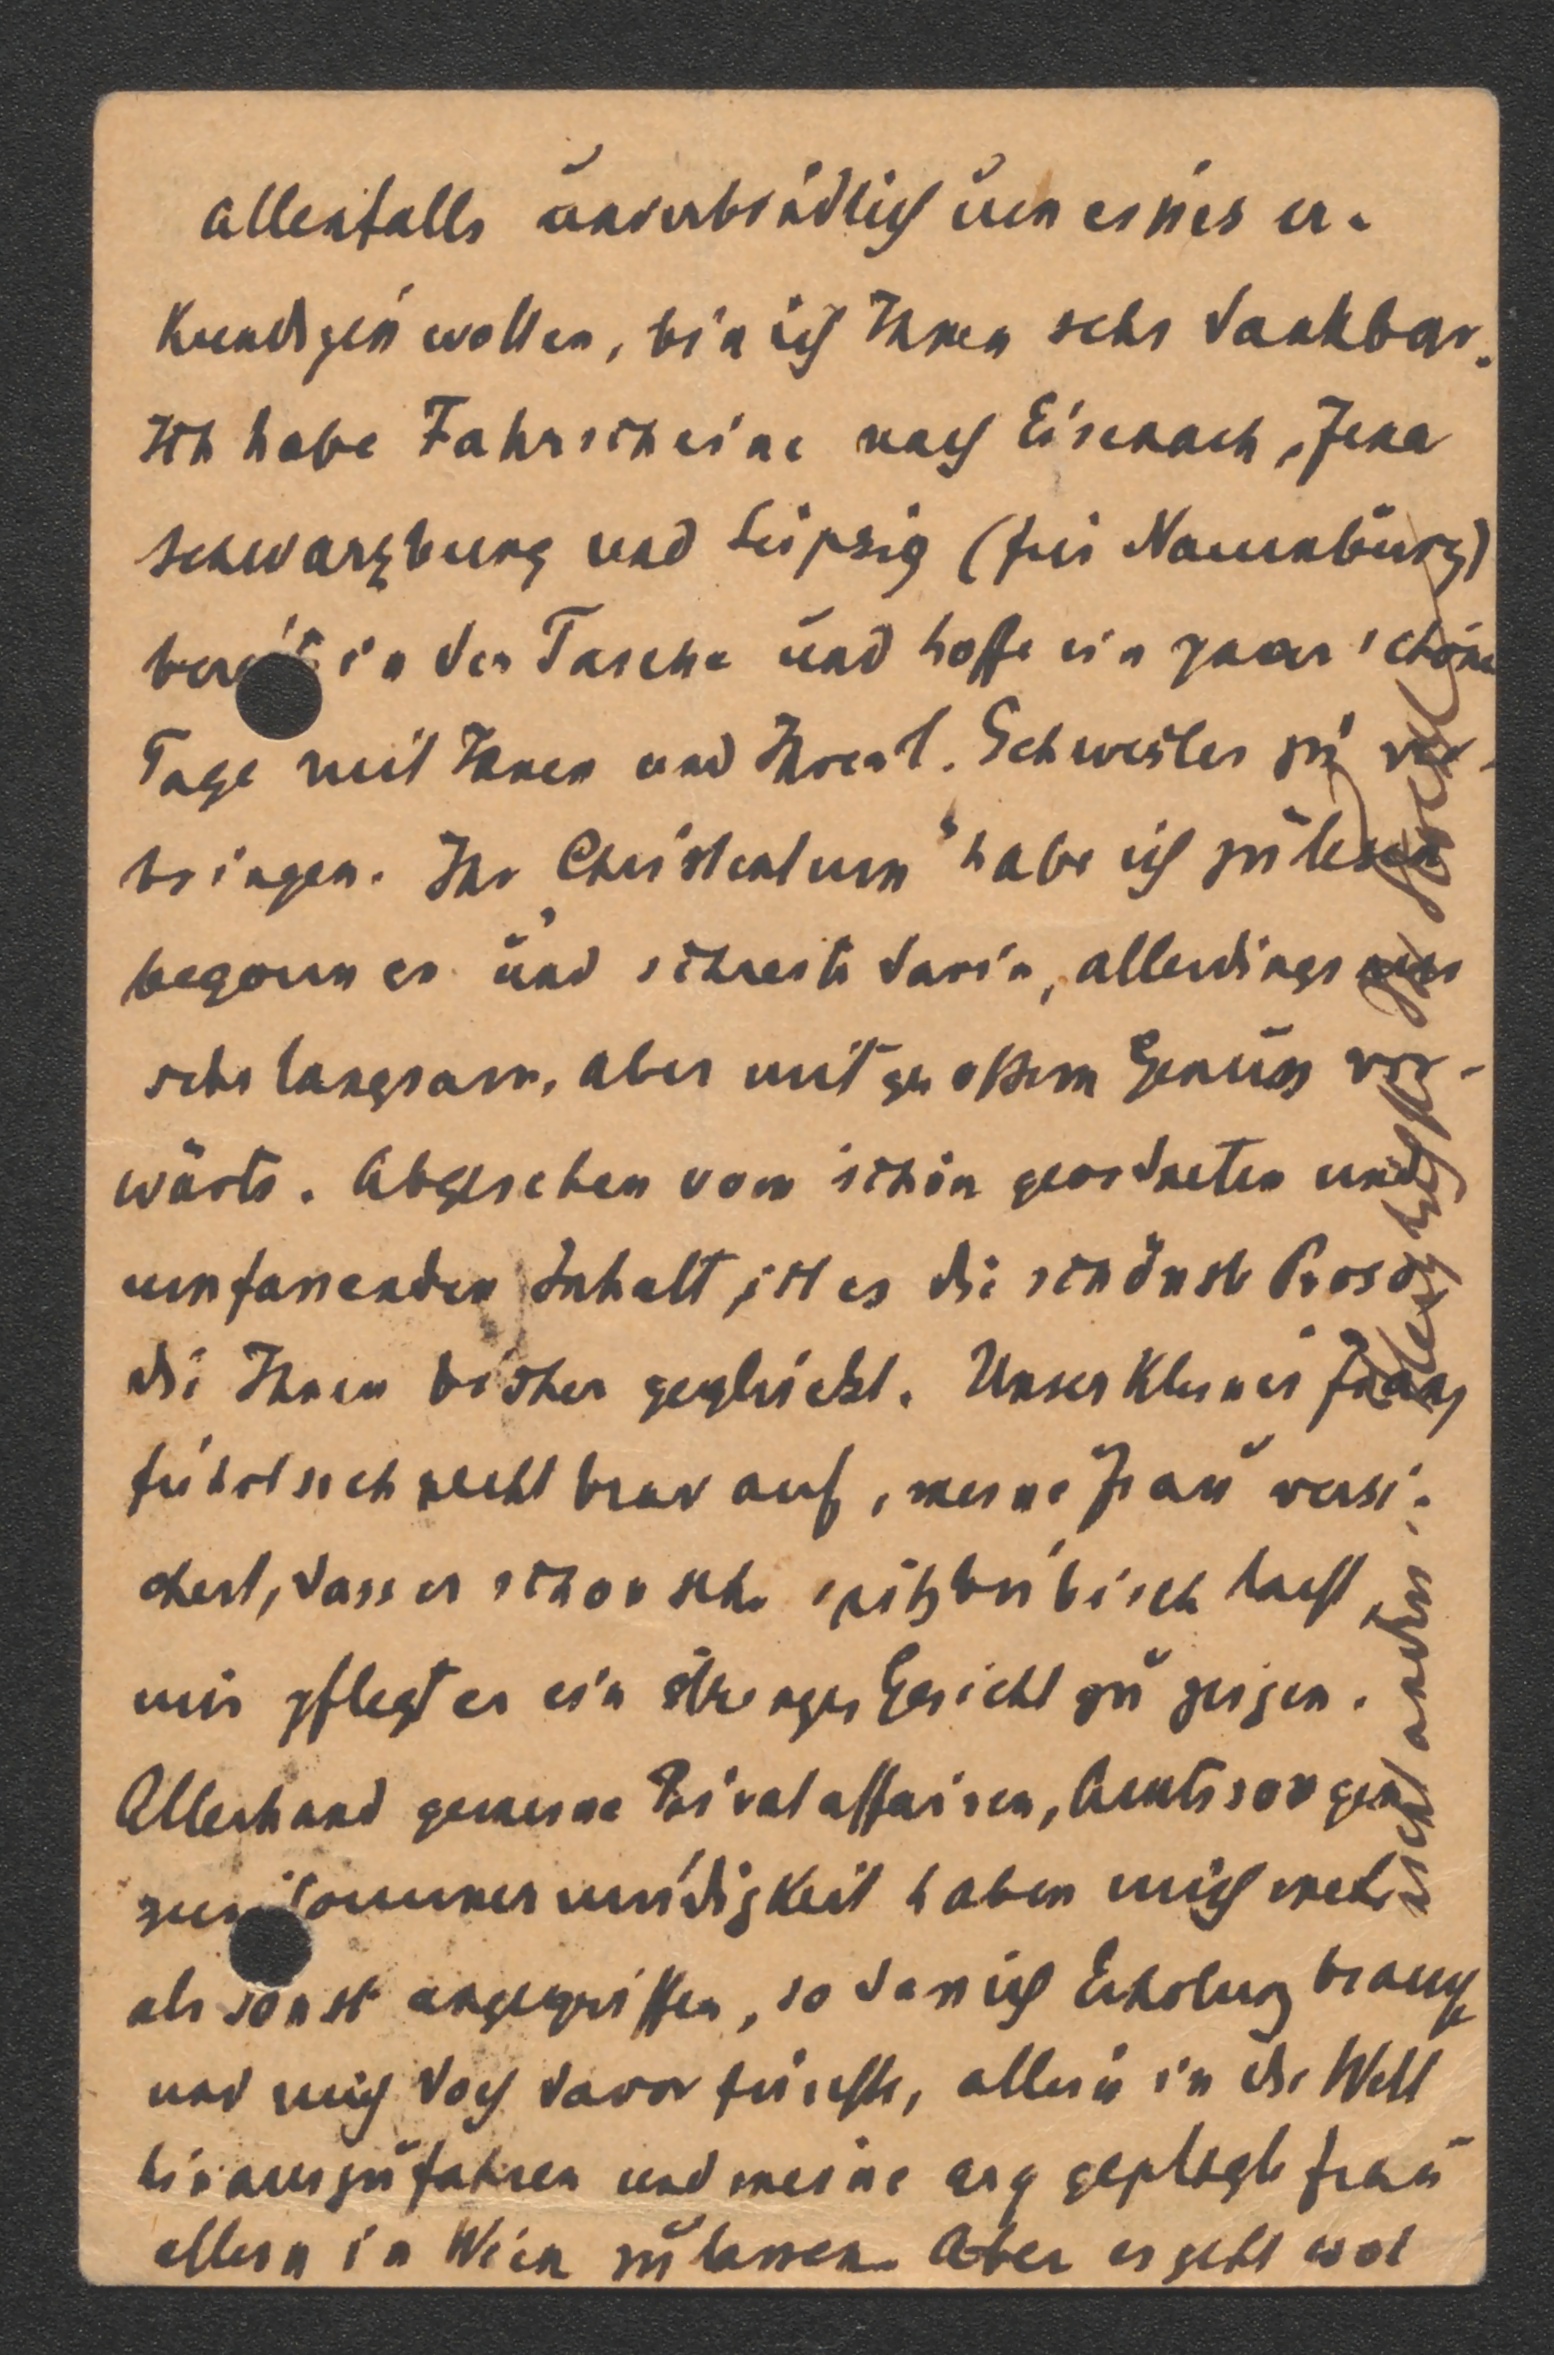 allenfalls unverbindlich um eines er-
kundigen wollen, bin ich Ihnen sehr dankbar.
Ich habe Fahrscheine nach Eisenach, Jena
Schwarzburg und Leipzig (für Naumburg)
bereits in der Tasche und hoffe ein paar schöne
Tage mit Ihnen und Ihrer l. Schwester zu ver-
bringen. Ihr „Christentum“ habe ich zu lesen
begonnen und schreite darin, allerdings nur
sehr langsam, aber mit großem Genuss vor-
wärts. Abgesehen vom schön geordneten und
umfassenden Inhalt, ist es die schönste Prosa,
die Ihnen bisher geglückt. Unser kleiner Franz
führt sich recht brav auf, meine Frau versi-
chert, dass er schon sehr spitzbübisch lacht,
mir pflegt er ein strenges Gesicht zu zeigen.
Allerhand gemeine Privataffairen, Amtssorgen
zur Sommermüdigkeit haben mich mehr
als sonst angegriffen, so dass ich Erholung brauche
und mich doch davor fürchte, allein in die Welt
hinauszufahren und meine arg geplagte Frau
allein in Wien zu lassen. Aber es geht wol
nicht anders.
Herzlichst Ihr